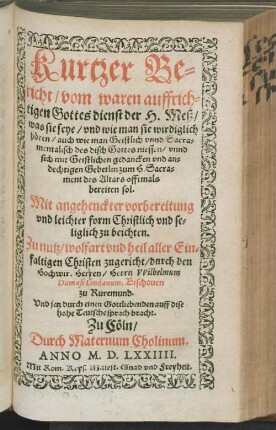 Kurtzer Be-
richt / vom waren auffrich-
tigen Gottes dienst der H. Meß /
was sie seye / vnd wie man sie wirdiglich
hören / auch wie man Geistlich vnnd Sacra-
mentalisch des disch Gottes niessen / vnnd
sich mit Geistlichen gedancken vnd an-
dechtigen Gebetlin zum H. Sacra-
ment des Altars offtmals
bereiten sol.
Mit angehenckter vorbereitung
vnd leichter form Christlich vnd se-
liglich zu beichten.
Zu nutz / wolfart vnd heil aller Ein-
faltigen Christen zugericht / durch den
Hochwir. Herren / Herrn VVilhelmum
Damasi Lindanum. Bischouen
zu Ruremund.
Vnd jetz durch einen Gottliebenden auff dise
hohe Teutsche sprach bracht.
Zu Cöln /
Durch Maternum Cholinum.
ANNO M. D. LXXIIII.
Mit Rom. Keys. Maiest. Gnad vnd Freyheit.